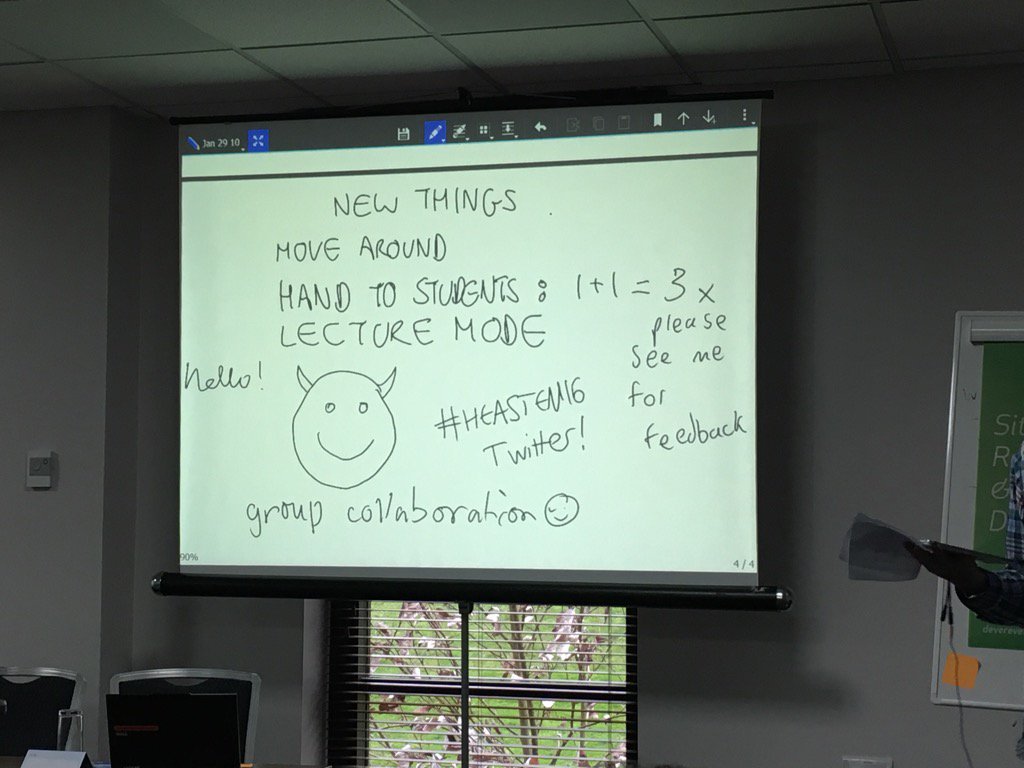 Jan 29 10
NEW THINGS
MOVE AROUND
HAND TO STUDENTS : 1+1 = 3 x
LECTURE MODE
please
see me
for
feedback
hello!
#HEASTEM16
Twitter!
group collaboration
90%
4 / 4
Sit
R
&
D
devereu